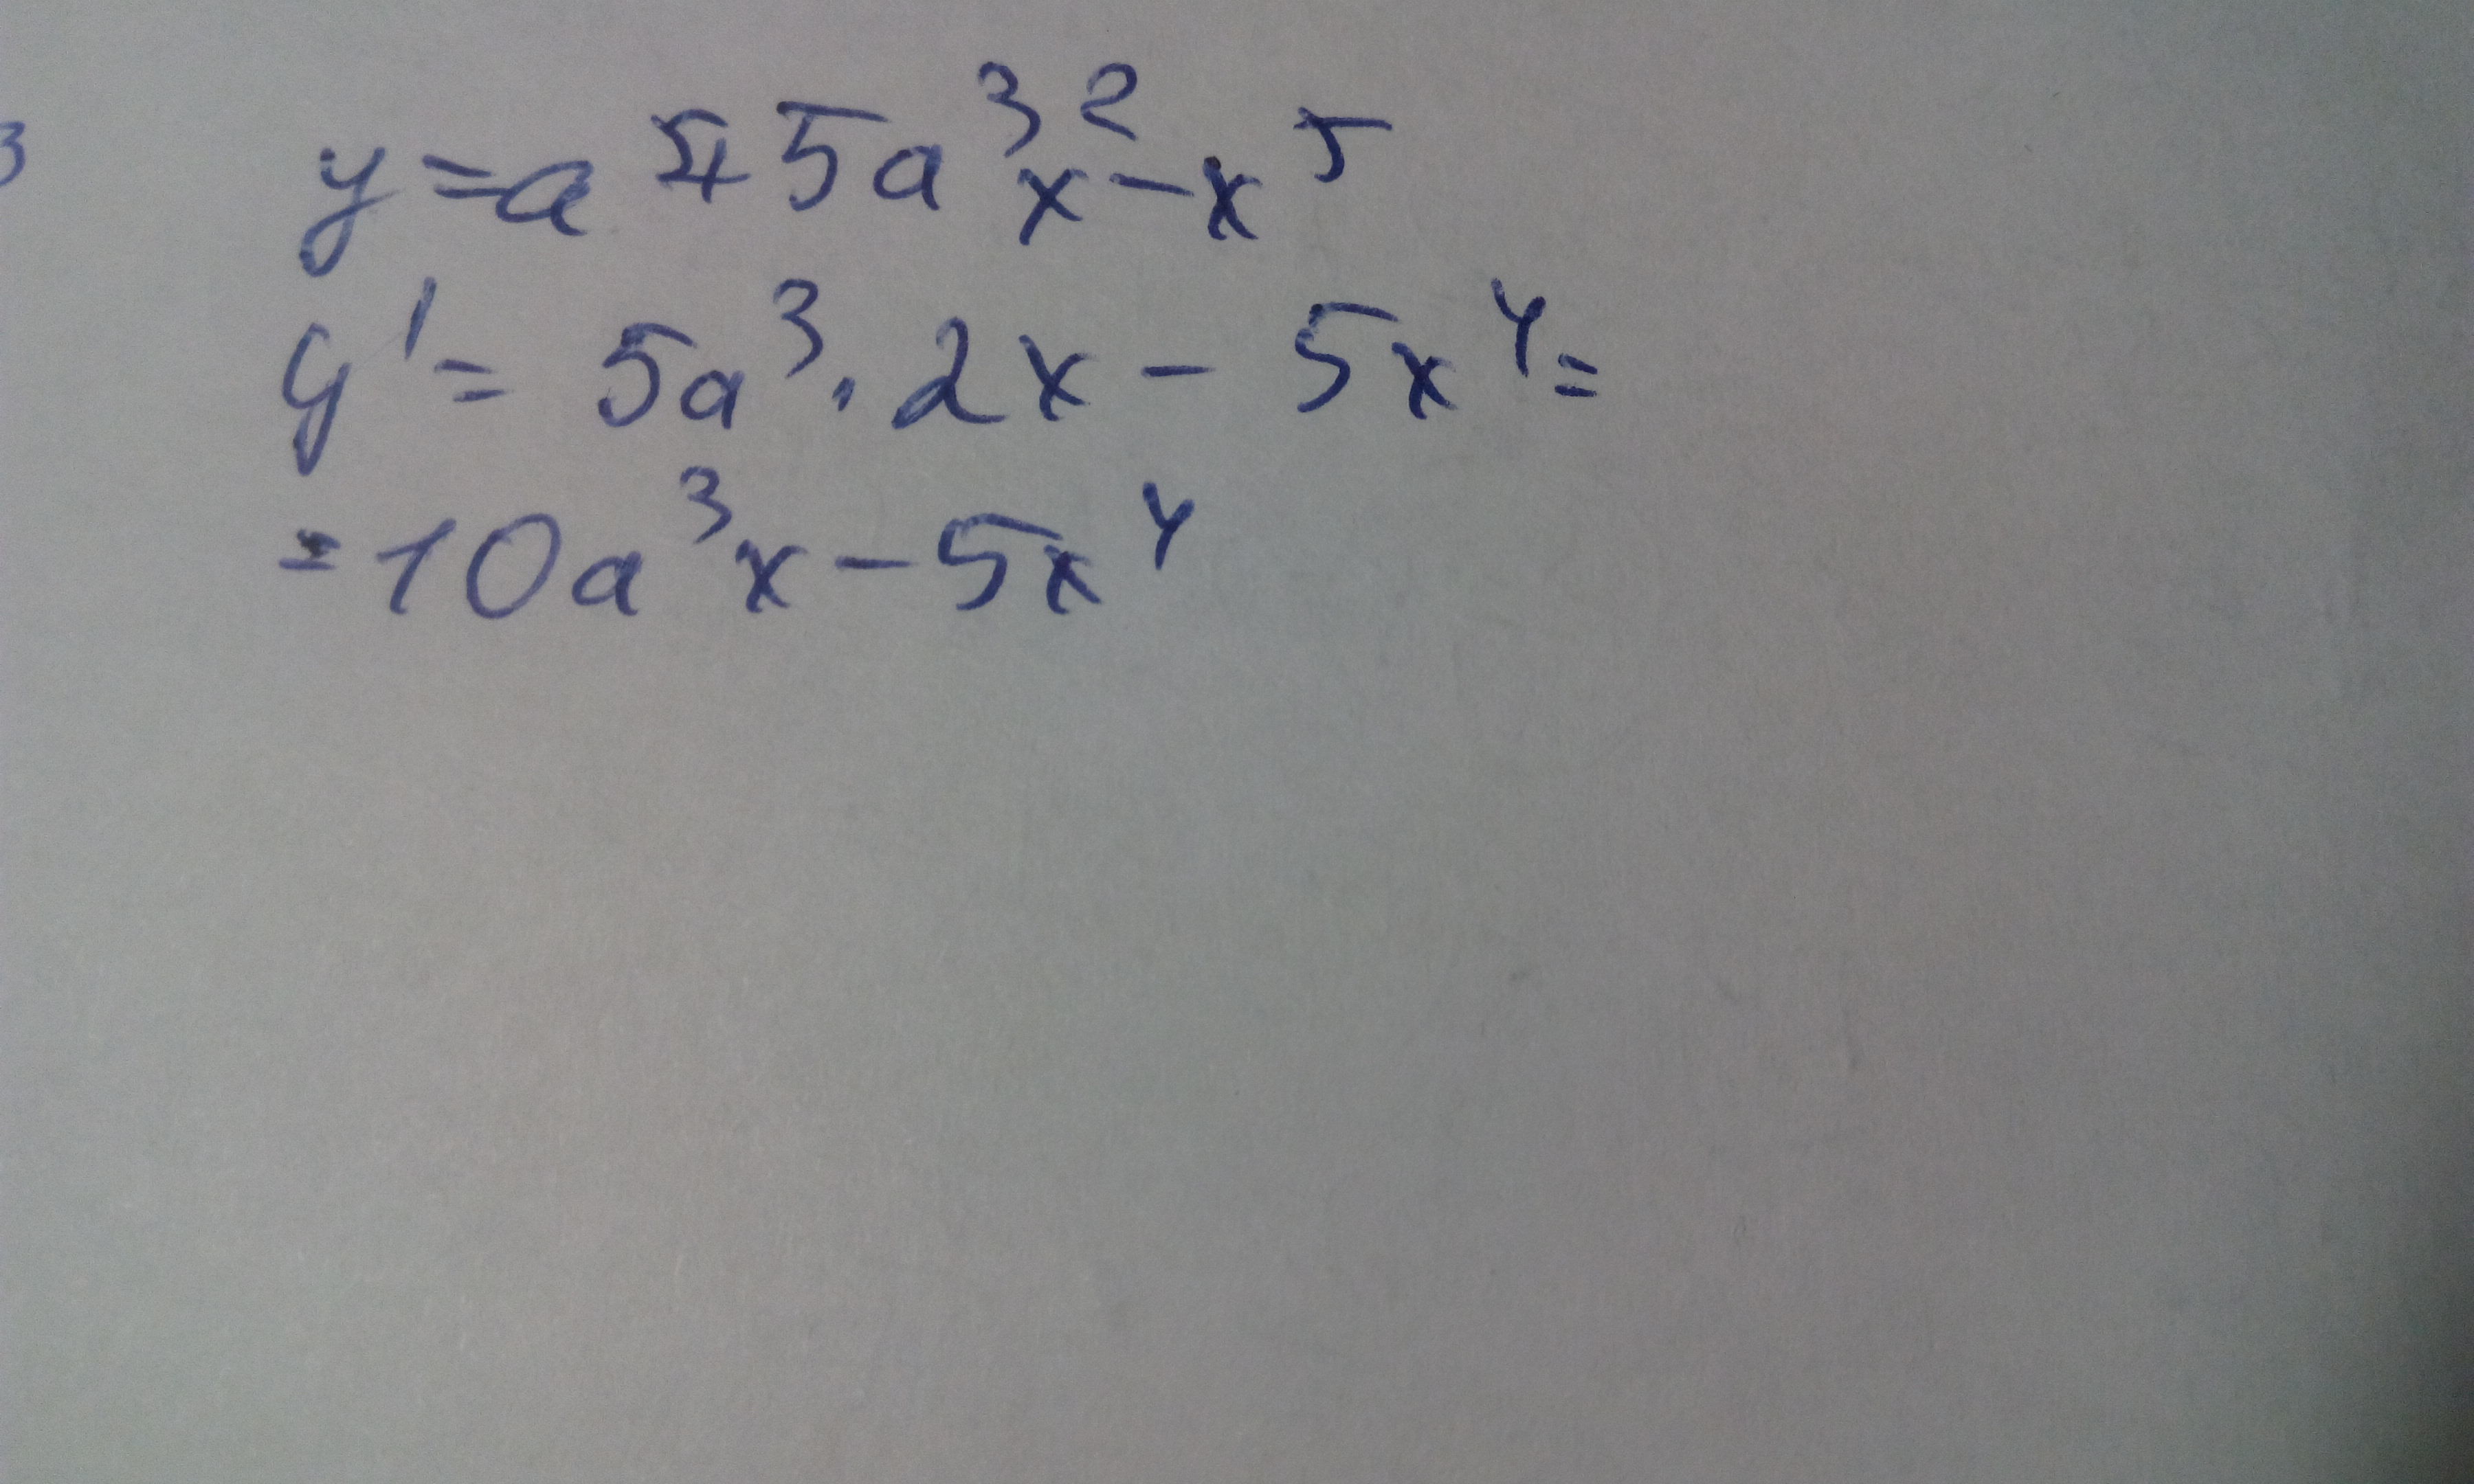 y = a⁵ + 5a³x² - x⁵
y' = 5a³ · 2x - 5x⁴ =
= 10a³x - 5x⁴